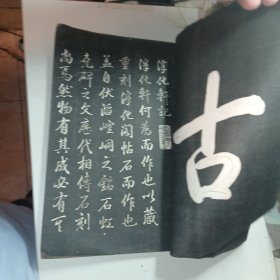 淳化軒記
淳化軒何為而作也以藏
重刻淳化閣帖石而作也
蓋自伏羲崆峒之銘石虹
堯碑之文歷代相傳石刻
尚焉然物有其成必有
古